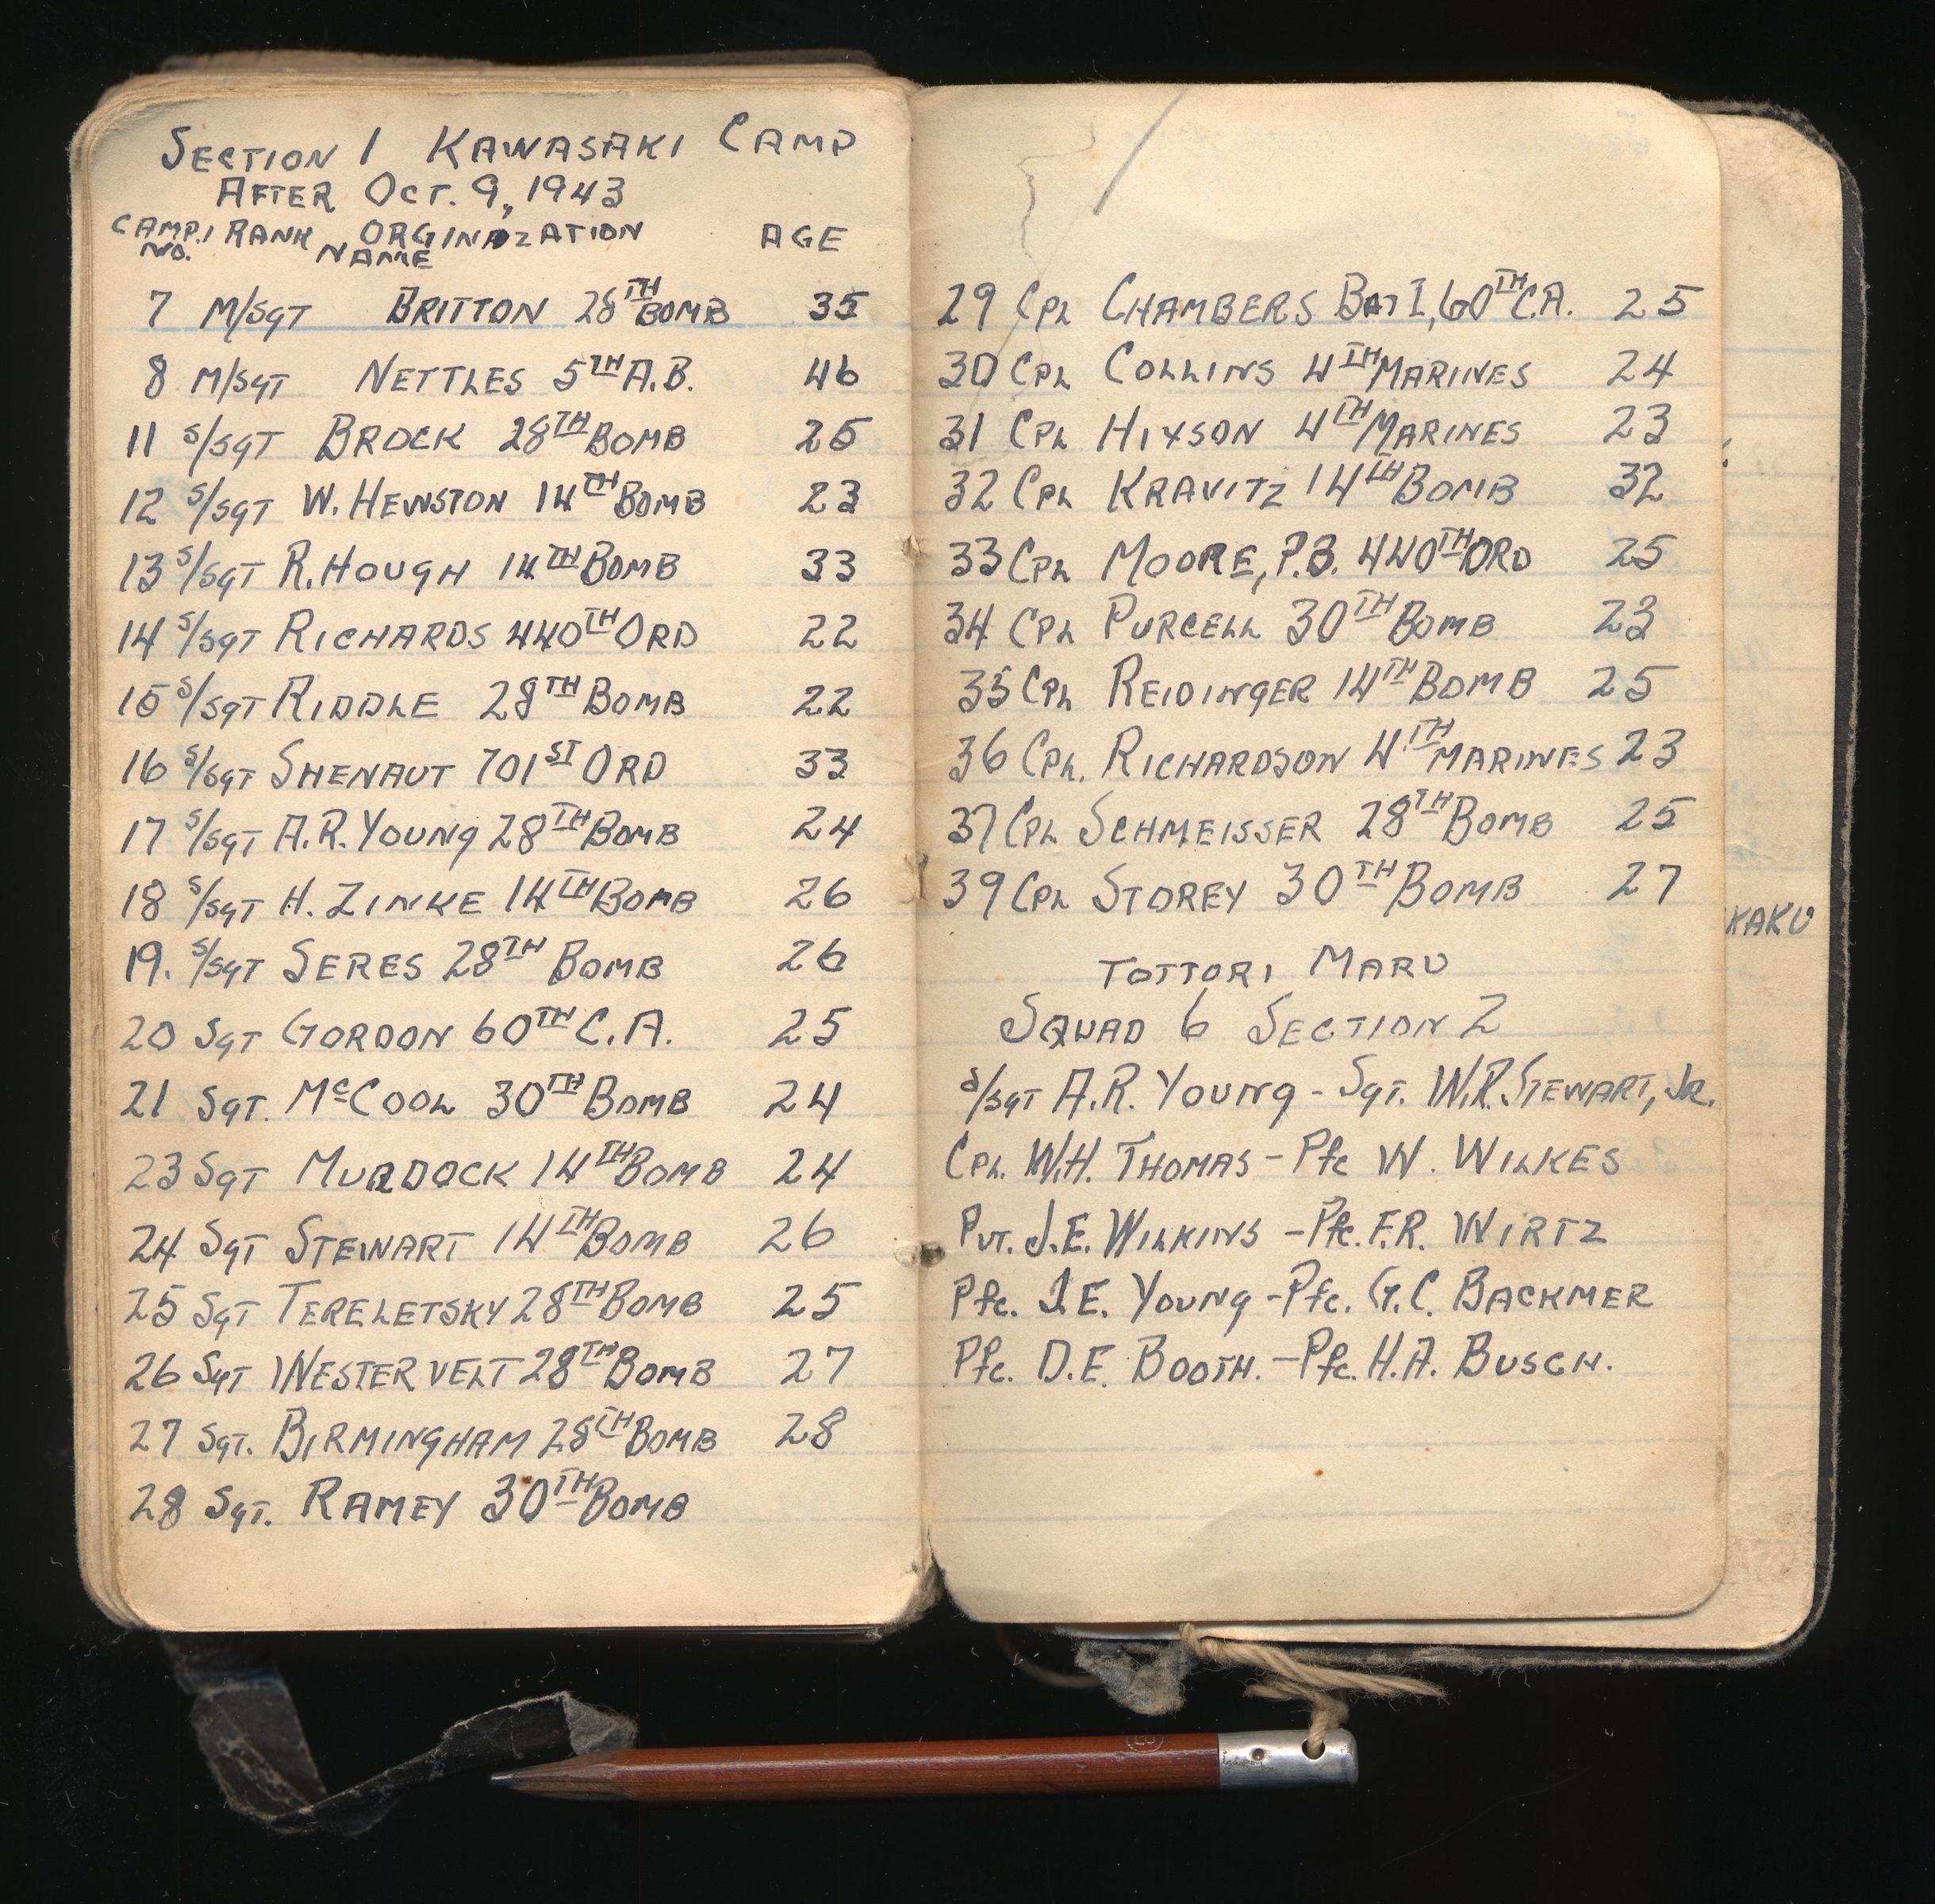 SECTION 1 KAWASAKI CAMP
AFTER OCT. 9, 1943
CAMP. NO. RANK NAME ORGINAZATION AGE
7 M/SGT BRITTON 28TH BOMB 35
8 M/SGT NETTLES 5TH A.B. 46
11 S/SGT BROCK 28TH BOMB 25
12 S/SGT W. HEWSTON 14TH BOMB 23
13 S/SGT R. HOUGH 14TH BOMB 33
14 S/SGT RICHARDS 440TH ORD 22
15 S/SGT RIDDLE 28TH BOMB 22
16 S/SGT SHENAUT 701ST ORD 33
17 S/SGT A.R. YOUNG 28TH BOMB 24
18 S/SGT H. ZINKE 14TH BOMB 26
19. S/SGT SERES 28TH BOMB 26
20 SGT GORDON 60TH C.A. 25
21 SGT. McCOOL 30TH BOMB 24
23 SGT MURDOCK 14TH BOMB 24
24 SGT STEWART 14TH BOMB 26
25 SGT TERELETSKY 28TH BOMB 25
26 SGT WESTERVELT 28TH BOMB 27
27 SGT. BIRMINGHAM 28TH BOMB 28
28 SGT. RAMEY 30TH BOMB
29 CPL CHAMBERS BAT I, 60TH C.A. 25
30 CPL COLLINS 4TH MARINES 24
31 CPL HIXSON 4TH MARINES 23
32 CPL KRAVITZ 14TH BOMB 32
33 CPL MOORE, P.B. 440TH ORD 25
34 CPL PURCELL 30TH BOMB 23
35 CPL REIDINGER 14TH BOMB 25
36 CPL. RICHARDSON 4TH MARINES 23
37 CPL SCHMEISSER 28TH BOMB 25
39 CPL STOREY 30TH BOMB 27
TOTTORI MARU
SQUAD 6 SECTION 2
S/SGT A.R. YOUNG - SGT. W.R. STEWART, JR.
CPL. W.H. THOMAS - Pfc W. WILKES
PVT. J.E. WILKINS - Pfc. F.R. WIRTZ
Pfc. I E. YOUNG - Pfc. G.C. BACKMER
Pfc. D.E. BOOTH. - Pfc. H.A. BUSCH.
KAKU